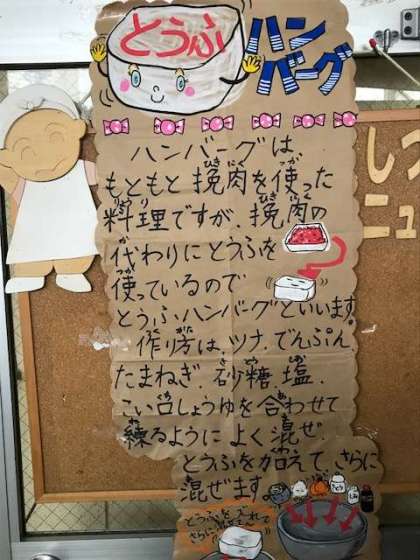 とうふ
ハン
バーグ
ハンバーグは
もともと挽肉を使った
料理ですが、挽肉の
代わりにとうふを
使っているので
とうふハンバーグといいます。
作り方は、ツナ、でんぷん、
たまねぎ、砂糖、塩、
こい口しょうゆを合わせて
練るようによく混ぜ、
とうふを加えて、さらに
混ぜます。
とうふを入れて
さらに混ぜる